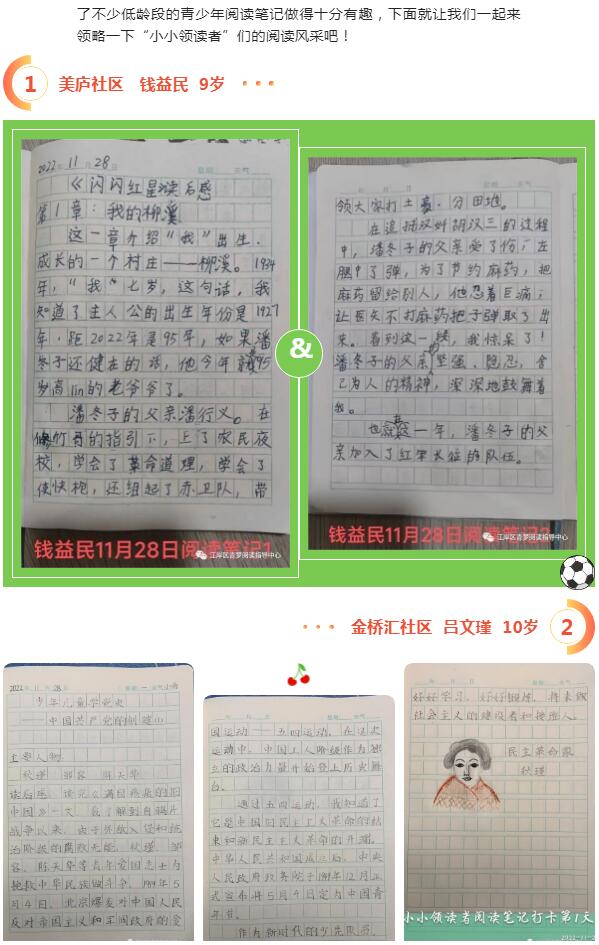 了不少低龄段的青少年阅读笔记做得十分有趣，下面就让我们一起来
领略一下“小小领读者”们的阅读风采吧！
1 美庐社区 钱益民 9岁
2022年11月28日 星期 天气
《闪闪红星》读后感
第1章：我的柳溪
这一章介绍“我”出生、
成长的一个村庄——柳溪。1934
年，“我”七岁，这句话，我
知道了主人公的出生年份是1927
年，距2022年是95年，如果潘
冬子还健在的话，他今年就95
岁高lin的老爷爷了。
潘冬子的父亲潘行义。在
修竹哥的指引下，上了农民夜
校，学会了革命道理，学会了
使快枪，还组起了赤卫队，带
钱益民11月28日阅读笔记1
江岸区青梦阅读指导中心
&
年 月 日 星期 天气
领大家打土豪、分田地。
在追捕汉奸胡汉三的过程
中，潘冬子的父亲受了伤，左
腿中了弹，为了节约麻药，把
麻药留给别人，他忍着巨痛，
让医生不打麻药把子弹取了出
来。看到这一段，我惊呆了！
潘冬子的父亲坚强、隐忍，舍
己为人的精神，深深地鼓舞着
我。
也就在这一年，潘冬子的父
亲加入了红军长征的队伍。
钱益民11月28日阅读笔记2
江岸区青梦阅读指导中心
金桥汇社区 吕文瑾 10岁 2
2022年11月28日 星期一 天气小雨
少年儿童学党史
——中国共产党的创建
主要人物：
秋瑾 邹容 陈天华
读后感：读完《满目疮痍的旧
中国》一文，我了解到自鸦片
战争以来，由于外敌入侵和统
治阶级的腐败无能，秋瑾、邹
容、陈天华等青年爱国志士为
拯救中华民族做斗争。1919年5
月4日，北京爆发中国人民
反对帝国主义和军阀政府的爱
国运动——五四运动。在这次
运动中，中国工人阶级作为独
立的政治力量开始登上历史舞
台。
通过五四运动，我知道了
它是中国旧民主主义革命的结
束和新民主主义革命的开端。
中华人民共和国成立后，中央
人民政府政务院于1949年12月正
式宣布将5月4日定为中国青
年节。
作为新时代的少先队员，
好好学习，好好锻炼，将来做
社会主义的建设者和接班人。
民主革命家
秋瑾
小小领读者阅读笔记打卡第1天